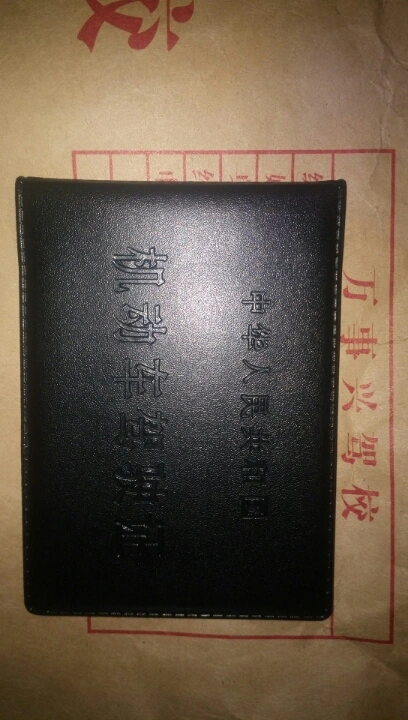 校
万事兴驾校
中华人民共和国
机动车驾驶证